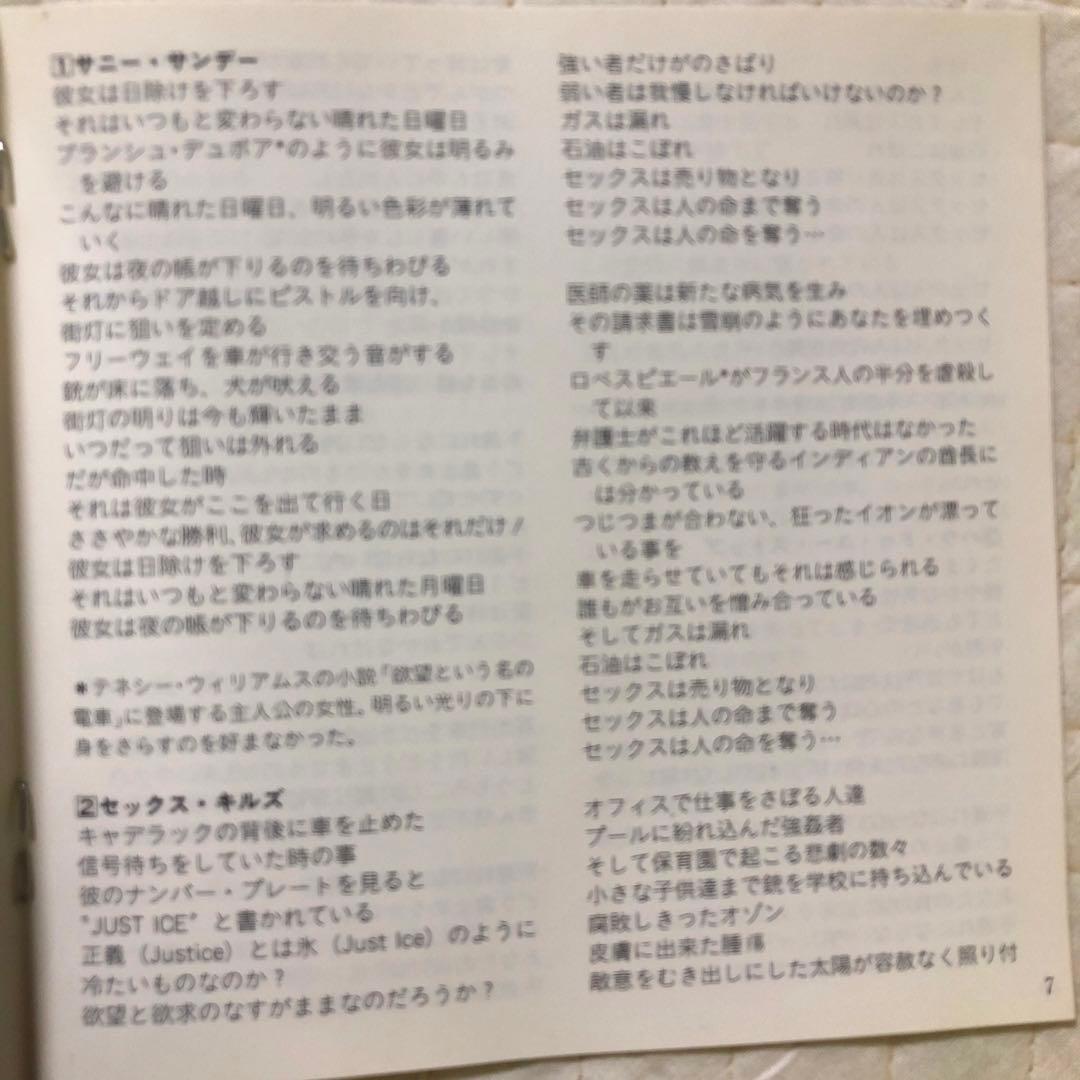 1 サニー・サンデー
彼女は日除けを下ろす
それはいつもと変わらない晴れた日曜日
ブランシュ・デュボア*のように彼女は明るみ
を避ける
こんなに晴れた日曜日、明るい色彩が薄れて
いく
彼女は夜の帳が下りるのを待ちわびる
それからドア越しにピストルを向け、
街灯に狙いを定める
フリーウェイを車が行き交う音がする
銃が床に落ち、犬が吠える
街灯の明りは今も輝いたまま
いつだって狙いは外れる
だが命中した時
それは彼女がここを出て行く日
ささやかな勝利、彼女が求めるのはそれだけ!
彼女は日除けを下ろす
それはいつもと変わらない晴れた月曜日
彼女は夜の帳が下りるのを待ちわびる
*テネシー・ウィリアムスの小説「欲望という名の
電車」に登場する主人公の女性。明るい光りの下に
身をさらすのを好まなかった。
2 セックス・キルズ
キャデラックの背後に車を止めた
信号待ちをしていた時の事
彼のナンバー・プレートを見ると
"JUST ICE" と書かれている
正義（Justice）とは氷（Just Ice）のように
冷たいものなのか？
欲望と欲求のなすがままなのだろうか？
強い者だけがのさばり
弱い者は我慢しなければいけないのか？
ガスは漏れ
石油はこぼれ
セックスは売り物となり
セックスは人の命まで奪う
セックスは人の命を奪う…
医師の薬は新たな病気を生み
その請求書は雪崩のようにあなたを埋めつく
す
ロベスピエール*がフランス人の半分を虐殺し
て以来
弁護士がこれほど活躍する時代はなかった
古くからの教えを守るインディアンの酋長に
は分かっている
つじつまが合わない、狂ったイオンが漂って
いる事を
車を走らせていてもそれは感じられる
誰もがお互いを憎み合っている
そしてガスは漏れ
石油はこぼれ
セックスは売り物となり
セックスは人の命まで奪う
セックスは人の命を奪う…
オフィスで仕事をさぼる人達
プールに紛れ込んだ強姦者
そして保育園で起こる悲劇の数々
小さな子供達まで銃を学校に持ち込んでいる
腐敗しきったオゾン
皮膚に出来た腫瘍
敵意をむき出しにした太陽が容赦なく照り付
7